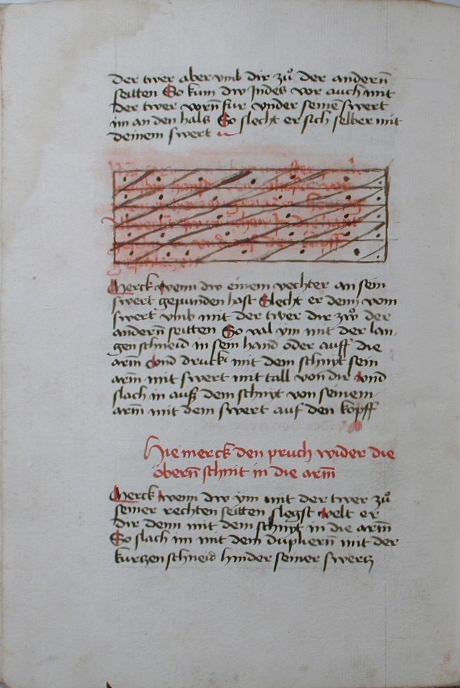 der twer aber vmb dir zů der andern̄
seitten So kum dw Indes vor auch mit
der twer vorn̄ fur vnder seinē swert
im an den hals So slecht er sich selber mit
deinem swert
Merck wenn dw einem vechter an sein
swert gepunden hast Slecht er denn vom
swert vmb mit der twer dir zẘ der
andern̄ seitten So val ym mit der lan-
gen schneid in sein hend oder auff die
arm̄ vnd druck mit dem schnyt sein
arm̄ mit swert mit tall von dir vnd
slach in auß dem schnyt von seinem
arm̄ mit dem swert auf den kopff
Hie merck den pruch wider die
öbern̄ schnit in die arm̄
Merck wenn dw ym mit der twer zů
seiner rechten seitten slegst velt er
dir denn mit dem schnyt in die arm̄
So slach im mit dem dupliern̄ mit der
kurczen schneid hinder seiner swercz